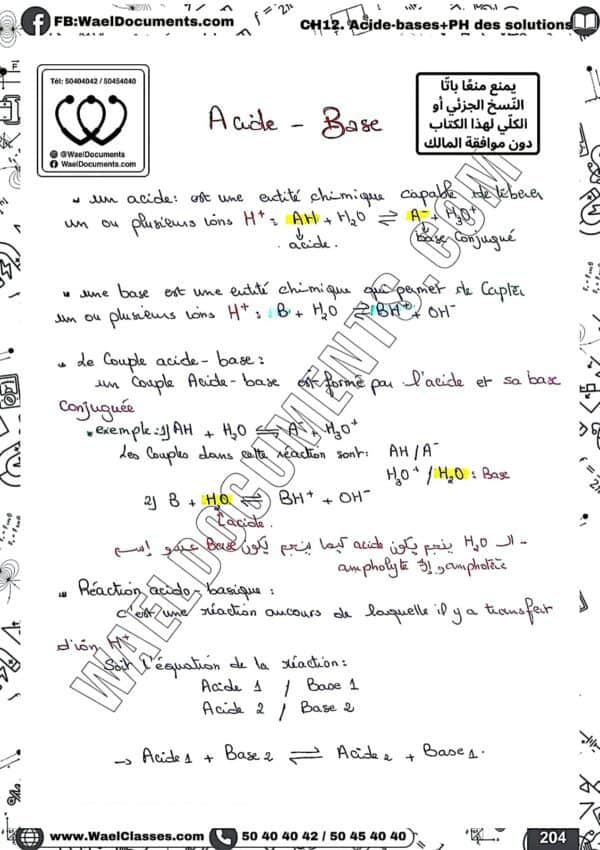 FB:WaelDocuments.com
CH12. Acide-bases+PH des solutions
Tél: 50404042 / 50454040
@WaelDocuments
WaelDocuments.com
يمنع منعًا باتًا
النّسخ الجزئي أو
الكلّي لهذا الكتاب
دون موافقة المالك
Acide - Base
un acide: est une entité chimique capable de libérer
un ou plusieurs ions H⁺: AH + H₂O ⇌ A⁻ + H₃O⁺
acide.
base conjugué
une base est une entité chimique qui permet de Capter
un ou plusieurs ions H⁺: B + H₂O ⇌ BH⁺ + OH⁻
Le Couple acide-base:
un Couple Acide-base est formé par l'acide et sa base
Conjuguée
exemple: 1) AH + H₂O ⇌ A⁻ + H₃O⁺
Les Couples dans cette réaction sont: AH / A⁻
H₃O⁺ / H₂O: Base
2) B + H₂O ⇌ BH⁺ + OH⁻
acide.
- الـ H₂O ينجم يكون acide كيما ينجم يكون Base عندو إسم
ampholyte وإلا amphotère
Réaction acido-basique:
c'est une réaction aucours de laquelle il y a transfert
d'ion H⁺
Soit l'équation de la réaction:
Acide 1 / Base 1
Acide 2 / Base 2
→ Acide 1 + Base 2 ⇌ Acide 2 + Base 1.
WAELDOCUMENTS.COM
www.WaelClasses.com
50 40 40 42 / 50 45 40 40
204